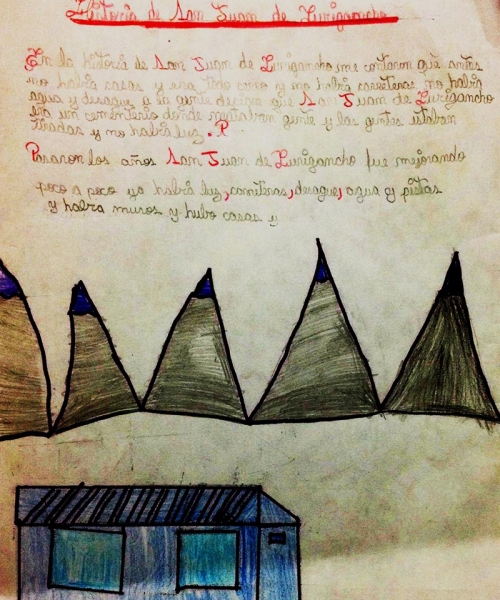 Historia de San Juan de Lurigancho
En la historia de San Juan de Lurigancho me contaron que antes
no habia casas y era todo cerro y no habia carreteras no habia
agua y desague y la gente decian que San Juan de Lurigancho
era un cementerio donde mataban gente y las gentes estaban
tiradas y no habia luz. P
Pasaron los años San Juan de Lurigancho fue mejorando
poco a poco ya habia luz, carreteras, desague, agua y pistas
y habia muros y hubo casas y